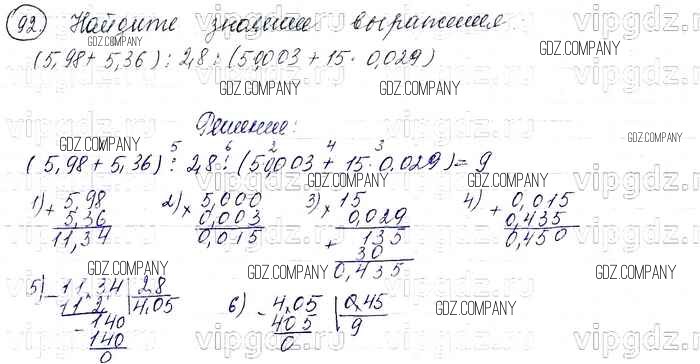 92 Найдите значение выражения
(5,98 + 5,36) : 2,8 : (5·0,003 + 15 · 0,029)
Решение:
5 6 2 4 3
(5,98 + 5,36) : 2,8 : (5·0,003 + 15 · 0,029) = 9
1) + 5,98
5,36
11,34
2) × 5,000
0,003
0,015
3) × 15
0,029
+ 135
30
0,435
4) + 0,015
0,435
0,450
5) - 11,34 | 2,8
112 | 4,05
- 140
140
0
6) - 4,05 | 0,45
405 | 9
0
GDZ.COMPANY
vipgdz.ru